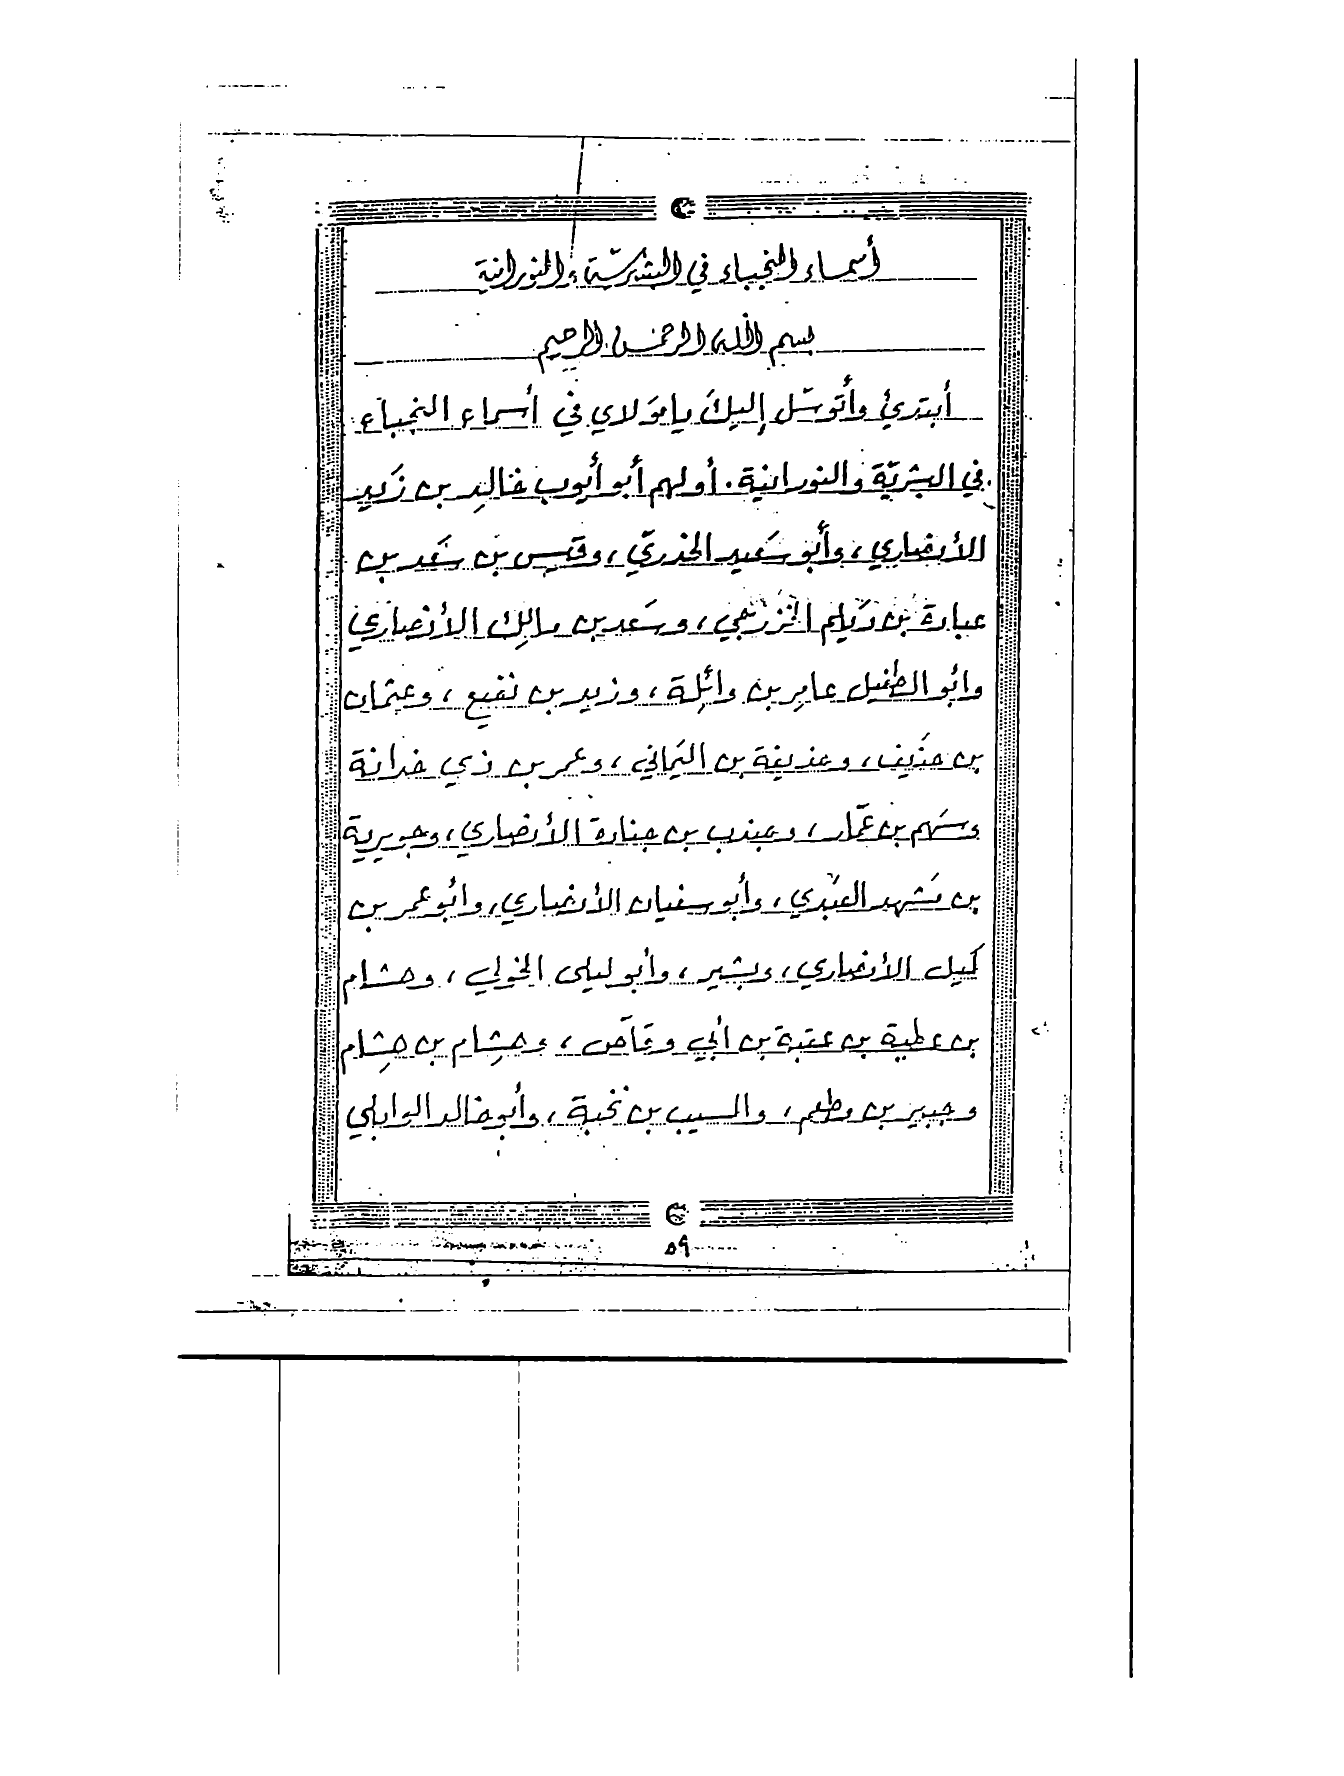 أسماء النجباء في البشريّة والنورانية
بسم الله الرحمن الرحيم
أبتدئ وأتوسّل إليكَ يا مَولاي في أسماء النجباء
في البشريّة والنورانية. أولهم أبو أيوب خالد بن زَيد
الأنصاري، وأبو سَعيد الخدريّ، وقيس بن سَعد بن
عبادة بن دَيلم الخزرَجي، وسَعد بن مالك الأنصاري
وأبو الطفيل عامِر بن وائِلة، وزيد بن نفيع، وعثمان
بن حنَيف، وحذيفة بن اليَماني، وعمر بن ذي خدانة
وسَهم بن عمّار، وجندب بن جنادة الأنصاري، وجويرية
بن مَشهد العَبدي، وأبو سفيان الأنصاري، وأبو عمر بن
كَيل الأنصاري، وبشير، وأبو ليلى الخولي، وهشام
بن عطية بن عتبة بن أبي وقاص، وهِشام بن هِشام
وجبير بن مطعم، والمسيب بن نخبة، وأبو خالد الوابلي
٥٩